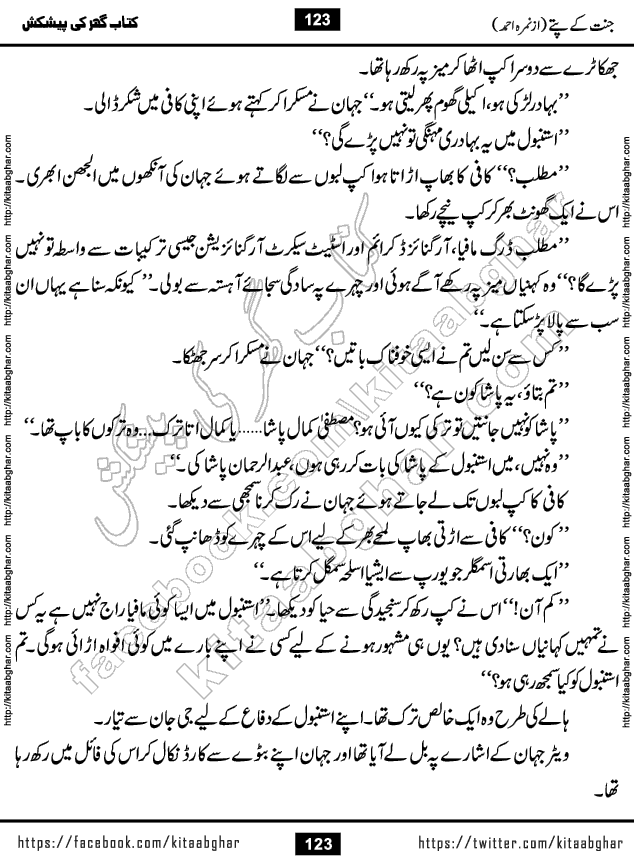 جنت کے پتے (از نمرہ احمد)
123
کتاب گھر کی پیشکش
جھکا ٹرے سے دوسرا کپ اٹھا کر میز پہ رکھ رہا تھا۔
’’بہادر لڑکی ہو، اکیلی گھوم پھر لیتی ہو۔‘‘ جہان نے مسکرا کر کہتے ہوئے اپنی کافی میں شکر ڈالی۔
’’استنبول میں یہ بہادری مہنگی تو نہیں پڑے گی؟‘‘
’’مطلب؟‘‘ کافی کا بھاپ اڑاتا ہوا کپ لبوں سے لگاتے ہوئے جہان کی آنکھوں میں الجھن ابھری۔
اس نے ایک گھونٹ بھر کر کپ نیچے رکھا۔
’’مطلب ڈرگ مافیا، آرگنائزڈ کرائم اور اسٹیٹ سیکرٹ آرگنائزیشن جیسی ترکیبات سے واسطہ تو نہیں
پڑے گا؟‘‘ وہ کہنیاں میز پہ رکھے آگے ہوئی اور چہرے پہ سادگی سجائے آہستہ سے بولی۔’’ کیونکہ سنا ہے یہاں ان
سب سے پالا پڑ سکتا ہے۔‘‘
’’کس سے سن لیں تم نے ایسی خوفناک باتیں؟‘‘ جہان نے مسکرا کر سر جھٹکا۔
’’تم بتاؤ، یہ پاشا کون ہے؟‘‘
’’پاشا کو نہیں جانتیں تو ترکی کیوں آئی ہو؟ مصطفیٰ کمال پاشا......یا کمال اتا ترک...وہ ترکوں کا باپ تھا۔‘‘
’’وہ نہیں، میں استنبول کے پاشا کی بات کر رہی ہوں، عبدالرحمان پاشا کی۔‘‘
کافی کا کپ لبوں تک لے جاتے ہوئے جہان نے رک کر نا سمجھی سے دیکھا۔
’’کون؟‘‘ کافی سے اڑتی بھاپ لمحے بھر کے لیے اس کے چہرے کو ڈھانپ گئی۔
’’ایک بھارتی اسمگلر جو یورپ سے ایشیا اسلحہ سمگل کرتا ہے۔‘‘
’’کم آن!‘‘ اس نے کپ رکھ کر سنجیدگی سے حیا کو دیکھا۔ ’’استنبول میں ایسا کوئی مافیا راج نہیں ہے یہ کس
نے تمہیں کہانیاں سنا دی ہیں؟ یوں ہی مشہور ہونے کے لیے کسی نے اپنے بارے میں کوئی افواہ اڑائی ہو گی۔ تم
استنبول کو کیا سمجھ رہی ہو؟‘‘
ہالے کی طرح وہ ایک خالص ترک تھا۔ اپنے استنبول کے دفاع کے لیے جی جان سے تیار۔
ویٹر جہان کے اشارے پہ بل لے آیا تھا اور جہان اپنے بٹوے سے کارڈ نکال کر اس کی فائل میں رکھ رہا
تھا۔
http://kitaabghar.com http://kitaabghar.com http://kitaabghar.com http://kitaabghar.com http://kitaabghar.com http://kitaabghar.com
http://kitaabghar.com http://kitaabghar.com http://kitaabghar.com http://kitaabghar.com http://kitaabghar.com http://kitaabghar.com
کتاب گھر کی پیشکش
kitaabghar.com
facebook.com/kitaabghar
https://facebook.com/kitaabghar
123
https://twitter.com/kitaabghar